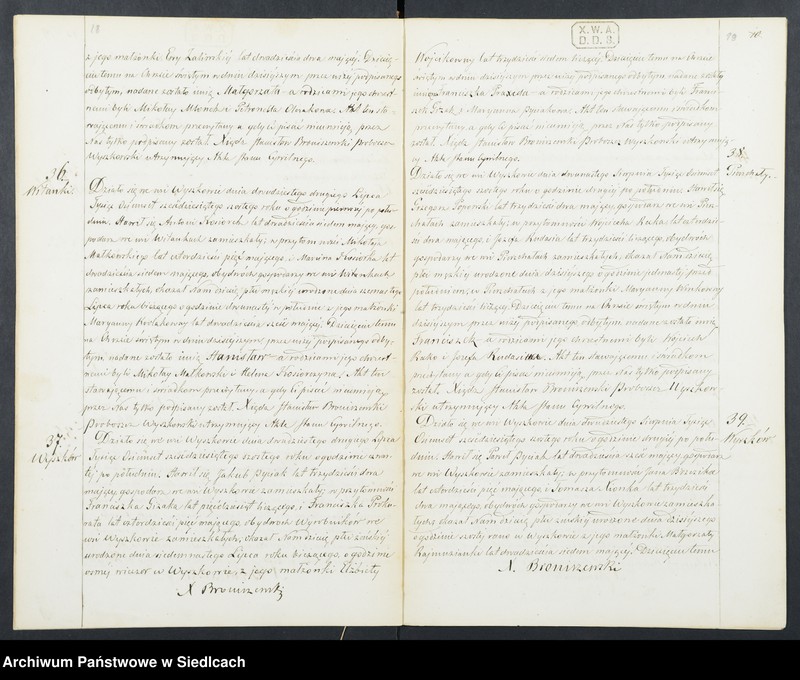 18
z jego małżonki Ewy Latoskiéj lat dwadzieścia dwa mającéj. Dziecię-
ciu temu na Chrzcie świętym w dniu dzisiejszym przez niżéj podpisanego
odbytym, nadane zostało imię Małgorzata a rodzicami jéj chrzest-
nemi byli Mikołaj i Petronela Akt ten sta-
wającemu i świadkom przeczytany a gdy ci pisać nieumieją, przez
Nas tylko podpisany został. Xiądz Stanisław Broniszewski Proboszcz
Wyszkowski utrzymujący Akta Stanu Cywilnego.
36.
Witanki.
Działo się we wsi Wyszkowie dnia dwudziestego drugiego Lipca
Tysiąc Ośmset sześćdziesiątego szóstego roku o godzinie pierwszéj po połu-
dniu. Stawił się Antoni Kosiorek lat dwadzieścia siedem mający, gos-
podarz we wsi Witankach zamieszkały, w przytomności Mikołaja
Matkowskiego lat czterdzieści pięć mającego i Marcina Kosiorka lat
dwadzieścia siedem mającego, obydwóch gospodarzy we wsi Witankach
zamieszkałych, okazał Nam dziecię płci męskiéj urodzone dnia
Lipca roku bieżącego o godzinie dwunastéj w południe z jego małżonki
Maryanny lat dwadzieścia sześć mającéj. Dziecięciu temu
na Chrzcie świętym w dniu dzisiejszym przez niżéj podpisanego odby-
tym, nadane zostało imię Stanisław a rodzicami jego chrzest-
nemi byli Mikołaj Matkowski i Helena Kosiorzyna. Akt ten
stawającemu i świadkom przeczytany a gdy ci pisać nieumieją
przez Nas tylko podpisany został. Xiądz Stanisław Broniszewski
Proboszcz Wyszkowski utrzymujący Akta Stanu Cywilnego.
37.
Wyszków
Działo się we wsi Wyszkowie dnia dwudziestego drugiego Lipca
Tysiąc Ośmset sześćdziesiątego szóstego roku o godzinie czwar-
téj po południu. Stawił się Jakub Pysiak lat trzydzieści dwa
mający, gospodarz we wsi Wyszkowie zamieszkały, w przytomności
Franciszka Gizaka lat pięćdziesiąt liczącego, i Franciszka Proko-
rata lat czterdzieści pięć mającego obydwóch Wyrobników we
wsi Wyszkowie zamieszkałych, okazał Nam dziecię płci żeńskiéj
urodzone dnia siedemnastego Lipca roku bieżącego, o godzinie
ósméj wieczór w Wyszkowie, z jego małżonki Elżbiety
X Broniszewski
X.W.A.
D.D.S.
19
Wójcikowny lat trzydzieści siedem liczącéj. Dziecięciu temu na Chrzcie
świętym w dniu dzisiejszym przez niżéj podpisanego odbytym nadane zostało
imię Franciszka Praxeda a rodzicami jéj chrzestnemi byli Franci-
szek Gizak i Maryanna Pysiakowa. Akt ten stawającemu i świadkom
przeczytany a gdy ci pisać nieumieją, przez Nas tylko podpisany
został. Xiądz Stanisław Broniszewski Proboszcz Wyszkowski utrzymują-
cy Akta Stanu Cywilnego.
38.
Działo się we wsi Wyszkowie dnia dwunastego Sierpnia Tysiąc Ośmset
sześćdziesiątego szóstego roku o godzinie drugiéj po południu. Stawił się
Grzegorz lat trzydzieści dwa mający, gospodarz we wsi
zamieszkały, w przytomności Wojciecha Kuka lat czterdzieś-
ci dwa mającego, i Józefa Rudasia lat trzydzieści liczącego, obydwóch
gospodarzy we wsi zamieszkałych, okazał Nam dziecię
płci męskiéj urodzone dnia dzisiejszego o godzinie jedenastéj przed
południem, w z jego małżonki Maryanny
lat trzydzieści liczącéj. Dziecięciu temu na Chrzcie świętym w dniu
dzisiejszym przez niżéj podpisanego odbytym, nadane zostało imię
Franciszek a rodzicami jego chrzestnemi byli Wojciech
Kuka i Józefa Rudasiowa. Akt ten stawającemu i świadkom
przeczytany a gdy ci pisać nieumieją, przez Nas tylko podpisany
został. Xiądz Stanisław Broniszewski Proboszcz Wyszkow-
ski utrzymujący Akta Stanu Cywilnego.
39.
Wyszków
Działo się we wsi Wyszkowie dnia dwunastego Sierpnia Tysiąc
Ośmset sześćdziesiątego szóstego roku o godzinie drugiéj po połu-
dniu. Stawił się Paweł Pysiak lat dwadzieścia sześć mający, gospodarz
we wsi Wyszkowie zamieszkały, w przytomności Jana
lat czterdzieści pięć mającego i Tomasza Xionka lat trzydzieści
dwa mającego, obydwóch gospodarzy we wsi Wyszkowie zamieszka-
łych, okazał Nam dziecię płci żeńskiéj urodzone dnia dzisiejszego
o godzinie szóstéj rano w Wyszkowie z jego małżonki Małgorzaty
lat dwadzieścia siedem mającéj. Dziecięciu temu
X. Broniszewski
Archiwum Państwowe w Siedlcach